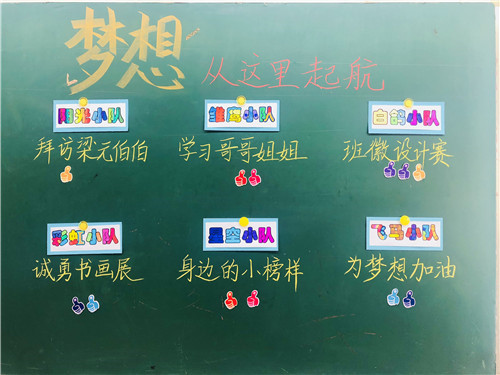 梦想
从这里起航
阳光小队
雏鹰小队
白鸽小队
拜访梁元伯伯
学习哥哥姐姐
班徽设计赛
彩虹小队
星空小队
飞马小队
诚勇书画展
身边的小榜样
为梦想加油